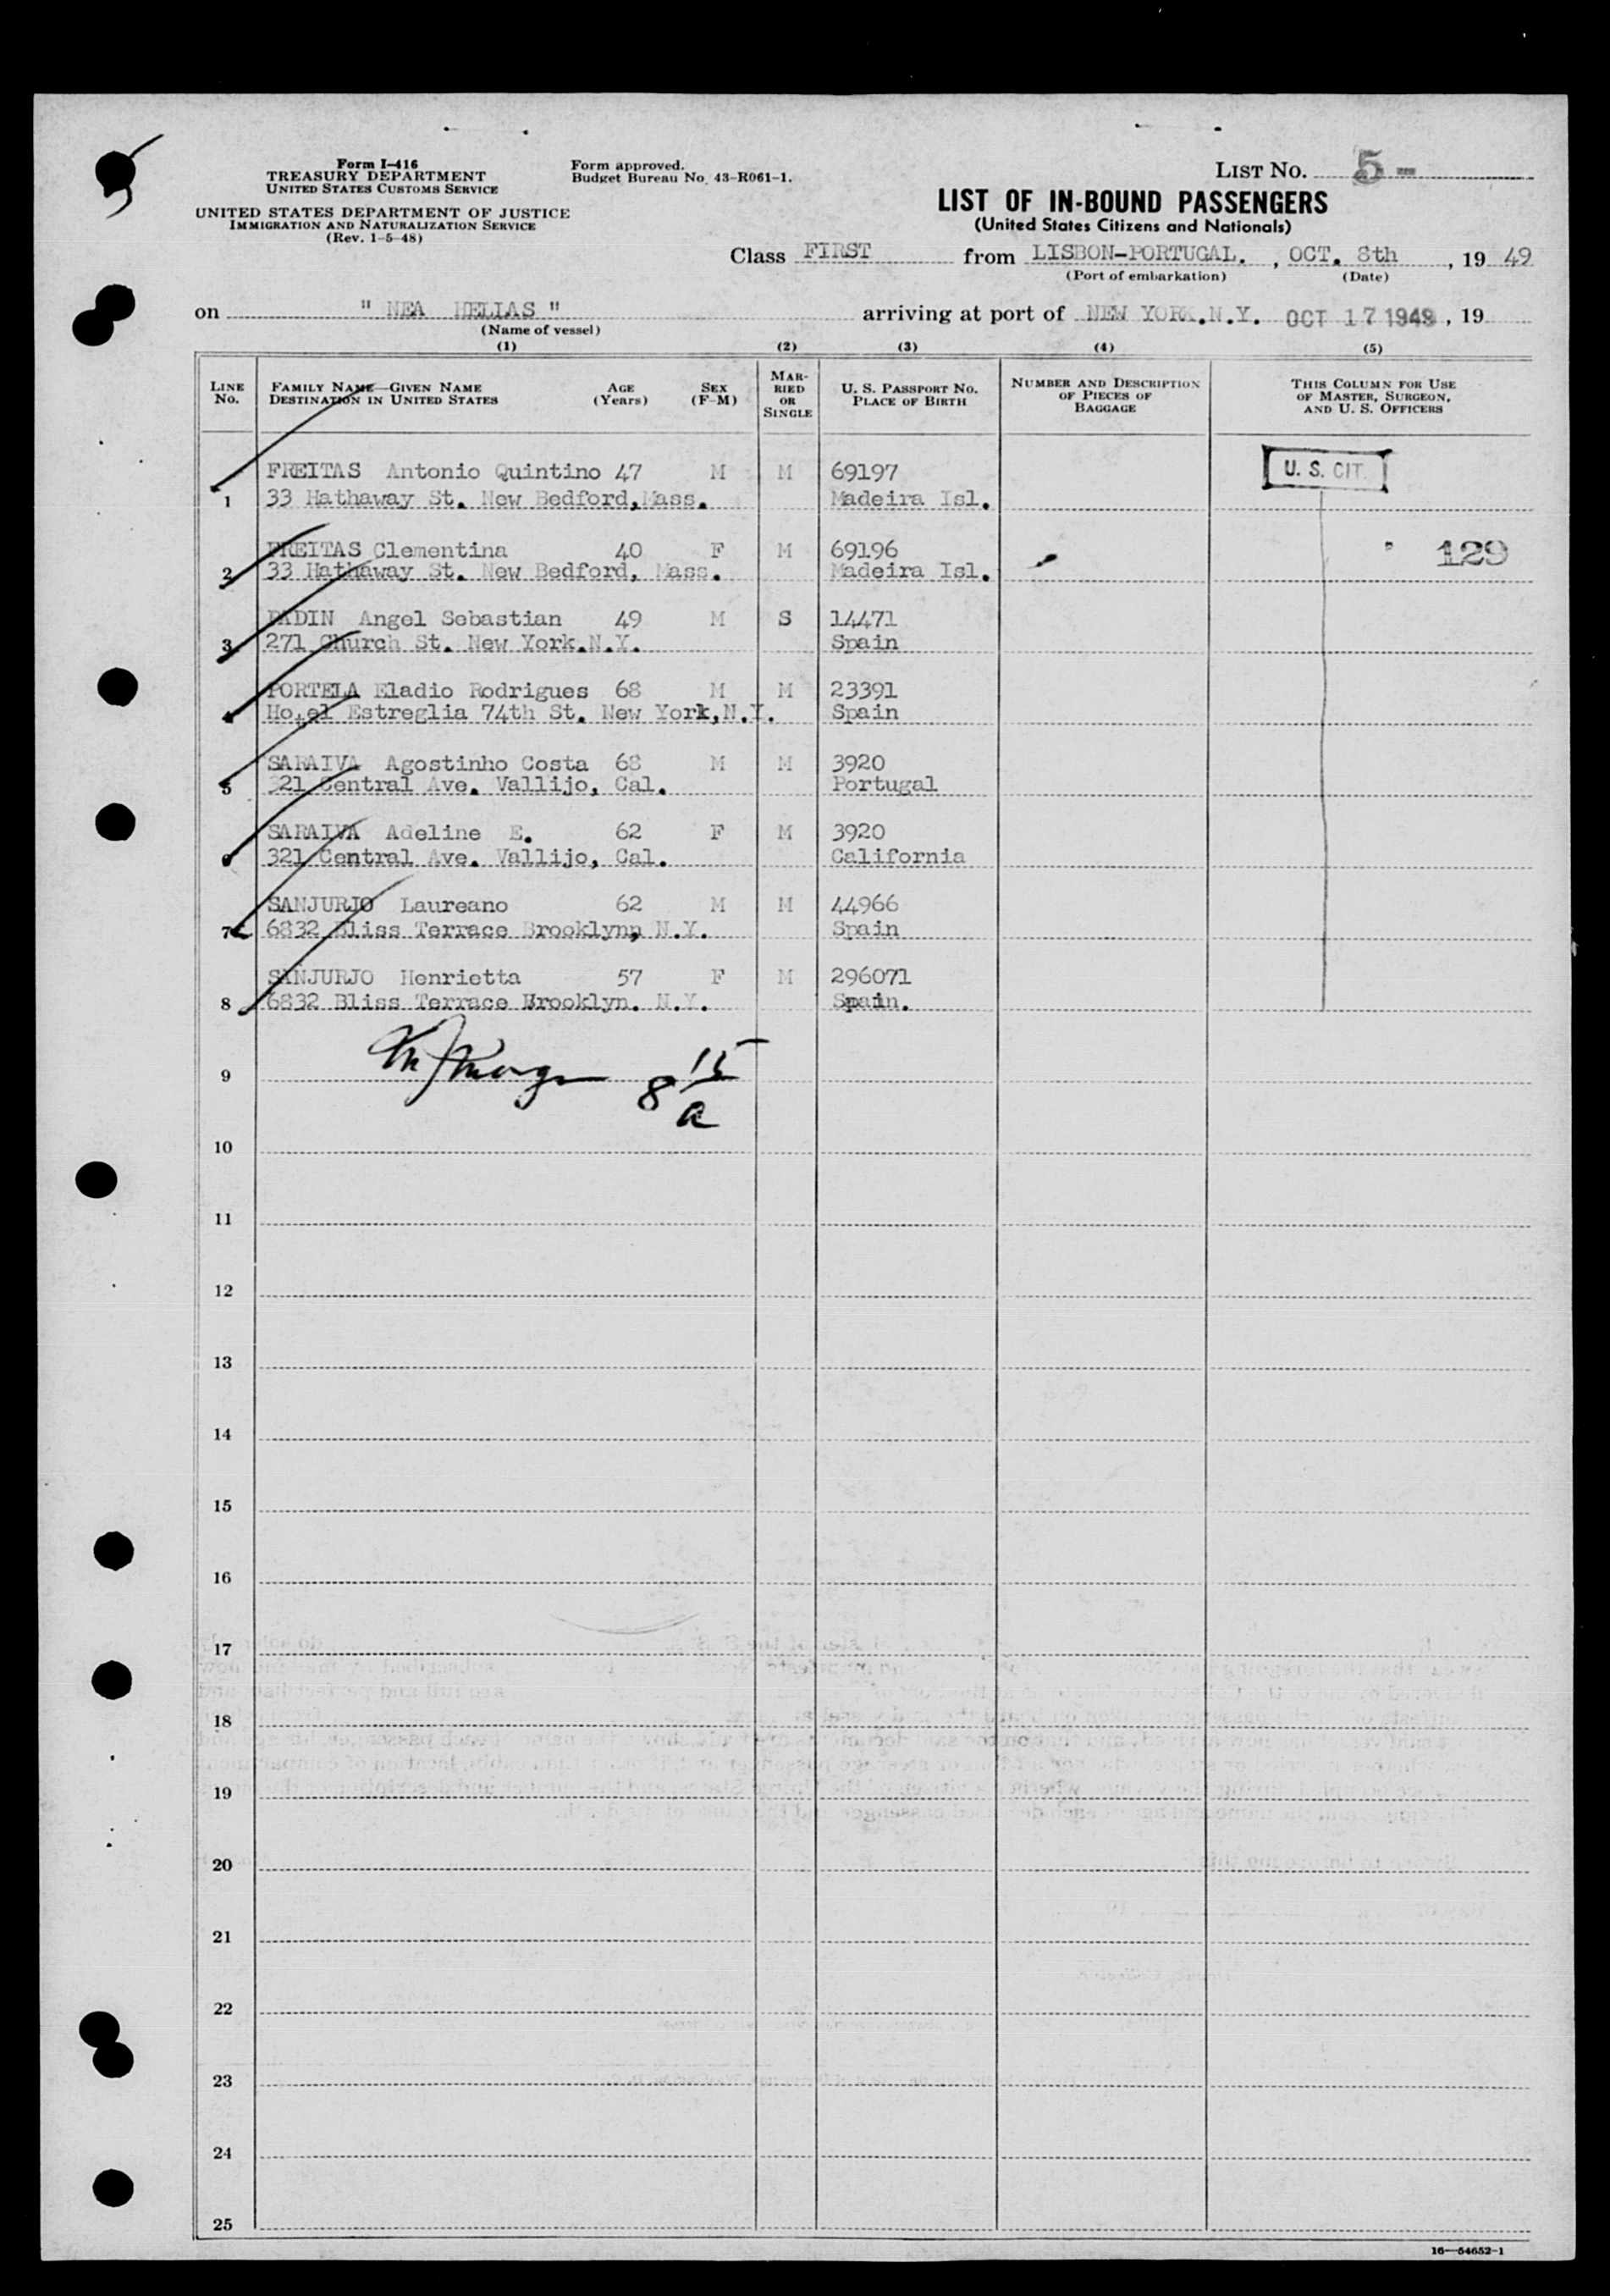 Form I-416
TREASURY DEPARTMENT
UNITED STATES CUSTOMS SERVICE
UNITED STATES DEPARTMENT OF JUSTICE
IMMIGRATION AND NATURALIZATION SERVICE
(Rev. 1-5-48)
Form approved.
Budget Bureau No. 43-R061-1.
LIST NO. 5 -
LIST OF IN-BOUND PASSENGERS
(United States Citizens and Nationals)
Class FIRST from LISBON-PORTUGAL. , OCT. 8th , 19 49
(Port of embarkation) (Date)
on " NEA HELIAS " arriving at port of NEW YORK.N.Y. OCT 17 1949 , 19
(Name of vessel)
(1) (2) (3) (4) (5)
LINE No. FAMILY NAME—GIVEN NAME DESTINATION IN UNITED STATES AGE (Years) SEX (F-M) MARRIED OR SINGLE U. S. PASSPORT NO. PLACE OF BIRTH NUMBER AND DESCRIPTION OF PIECES OF BAGGAGE THIS COLUMN FOR USE OF MASTER, SURGEON, AND U. S. OFFICERS
FREITAS Antonio Quintino 47 M M 69197 U. S. CIT.
1 33 Hathaway St. New Bedford,Mass. Madeira Isl.
FREITAS Clementina 40 F M 69196 129
2 33 Hathaway St. New Bedford, Mass. Madeira Isl.
PADIN Angel Sebastian 49 M S 14471
3 271 Church St. New York.N.Y. Spain
PORTELA Eladio Rodrigues 68 M M 23391
4 Hotel Estreglia 74th St. New York,N.Y. Spain
SARAIVA Agostinho Costa 68 M M 3920
5 321 Central Ave. Vallijo, Cal. Portugal
SARAIVA Adeline E. 62 F M 3920
6 321 Central Ave. Vallijo, Cal. California
SANJURJO Laureano 62 M M 44966
7 6832 Bliss Terrace Brooklynn, N.Y. Spain
SANJURJO Henrietta 57 F M 296071
8 6832 Bliss Terrace Brooklyn. N.Y. Spain.
9 8 15 a
10
11
12
13
14
15
16
17
18
19
20
21
22
23
24
25
16—54652-1